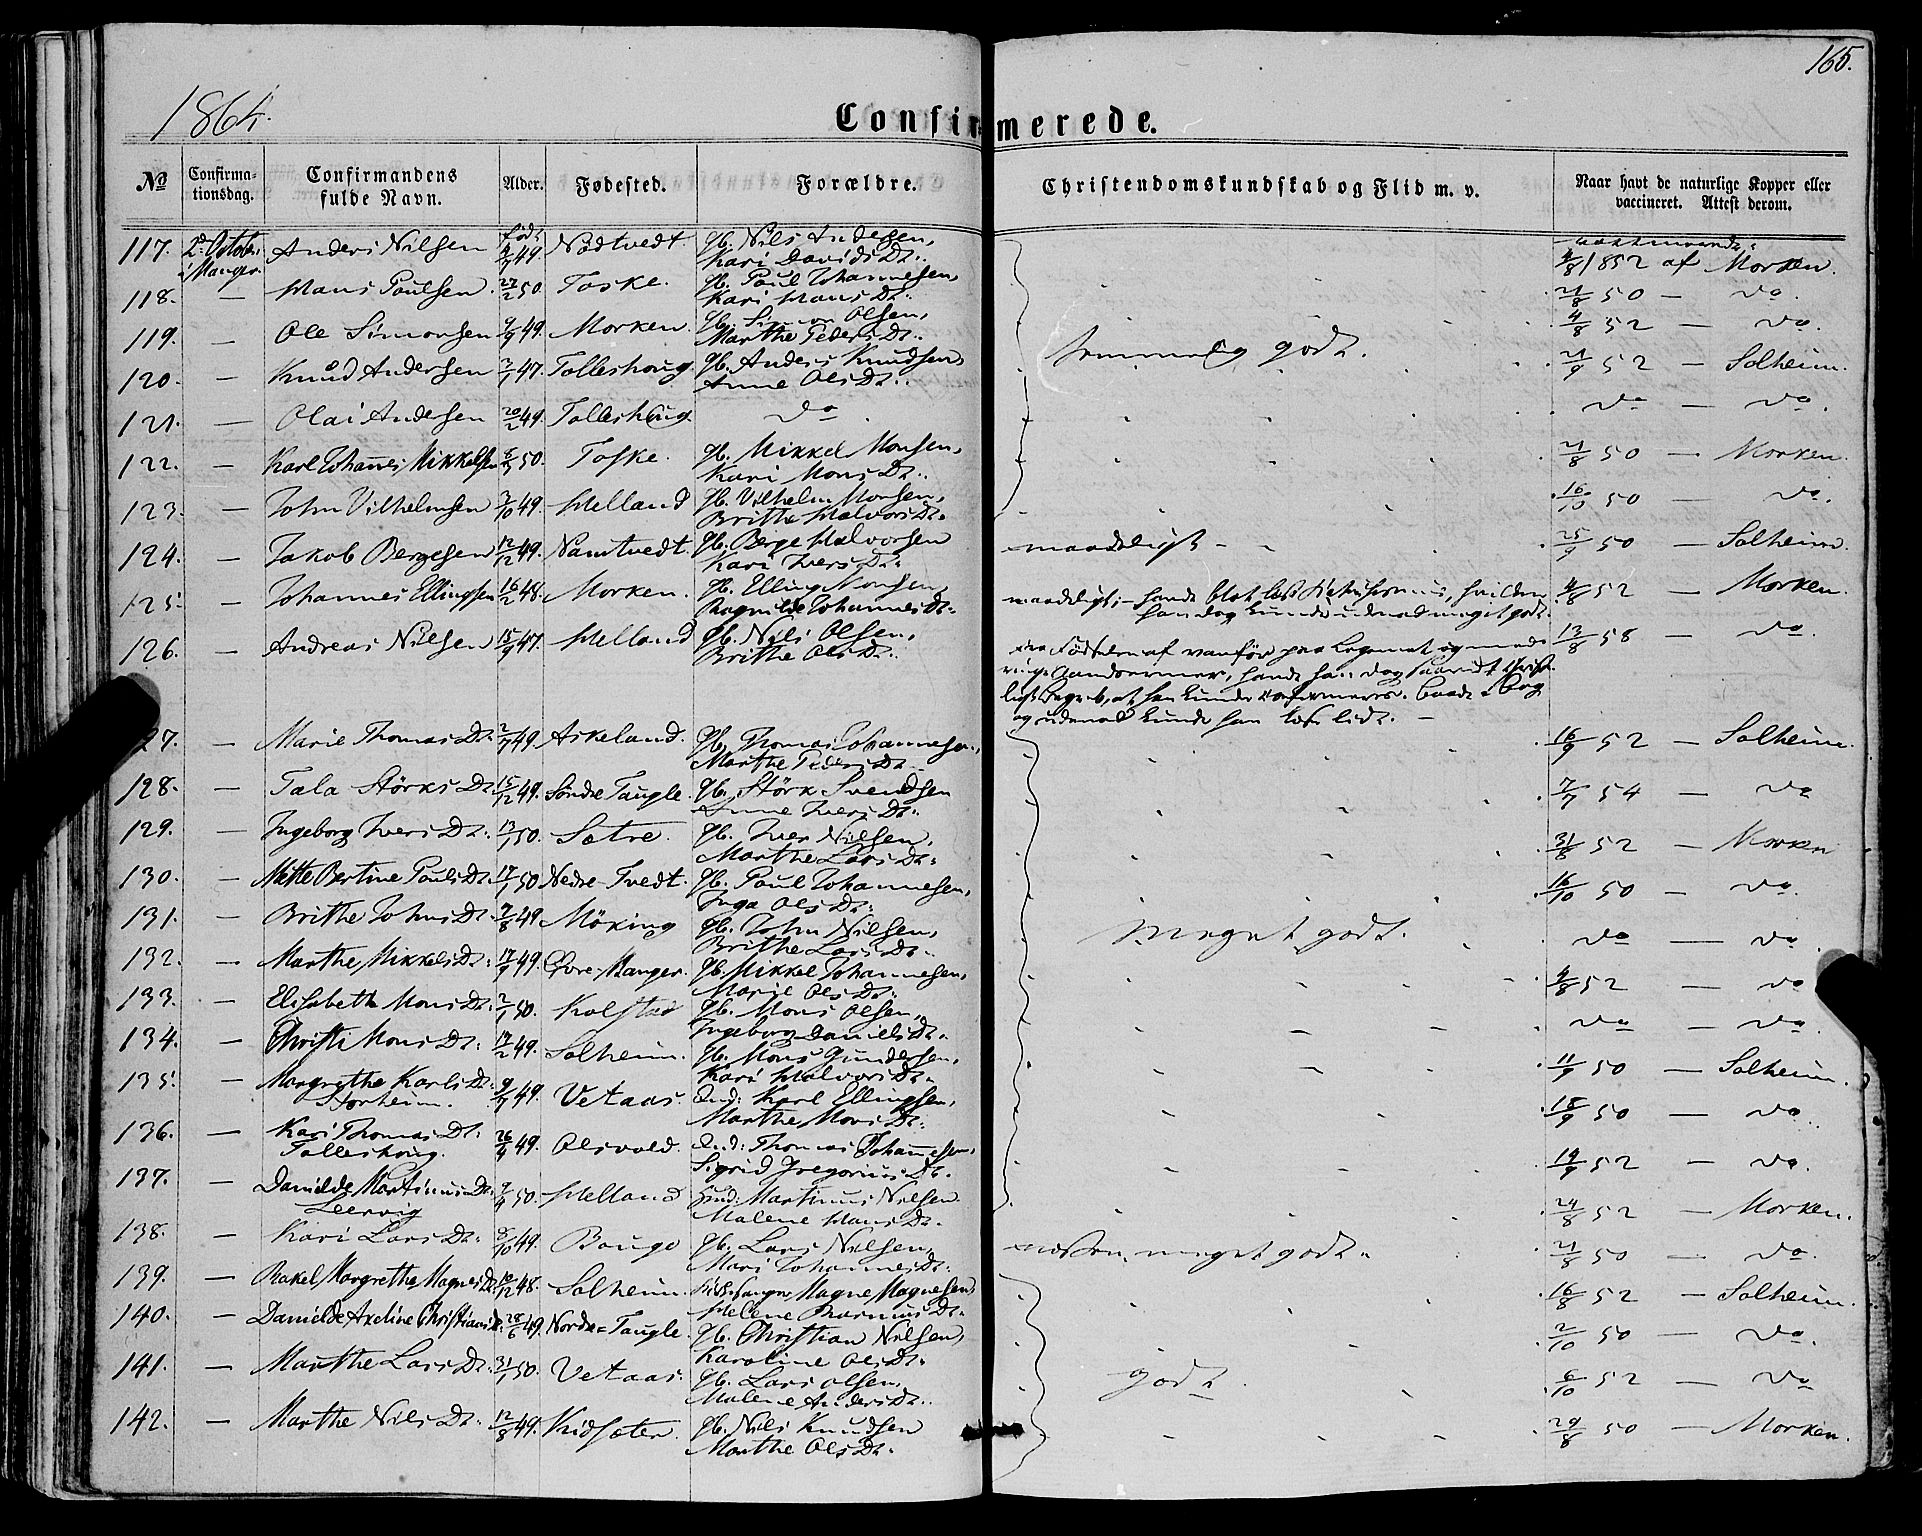 165.
1864.
Confirmerede.
No
Confirmationsdag.
Confirmandens fulde Navn.
Alder.
Fødested.
Forældre.
Christendomskundskab og Flid m. v.
Naar havt de naturlige Kopper eller vaccineret. Attest derom.
117. 2d Octob. i Manger. Anders Nilsen født 4/7 49. Nødtvedt Gb. Nils Andersen, Kari DavidsDr. 4/8 1852 af Morken.
118. — Hans Paulsen 27/2 50. Toske. Gb. Paul Johannesen, Kari HansDr. 21/8 50 — do.
119. — Ole Simonsen 9/9 49. Morken. Gb. Simon Olsen, Marthe PedersDr. 4/8 52 — do.
120. — Knud Andersen 3/1 47. Talleshoug Gb. Anders Knudsen, Anne OlsDr. temmelig godt. 21/9 52 — Solheim.
121. — Olai Andersen 20/2 49. Talleshoug. do do — do.
122. — Karl Johannes Mikkelsen 50. Toske. Gb. Mikkel Monsen, Kari MonsDr. 21/8 50 — Morken.
123. — John Vilhelmsen 3/10 49. Helland Gb. Vilhelm Monsen, Brithe HalvorsDr. 16/10 50 — do.
124. — Jakob Bergesen 12/12 49. Namtvedt. Gb. Berge Halvorsen Kari IversDr. maadeligt — 25/9 50 — Solheim.
125. — Johannes Ellingsen 16/2 48. Morken. Gb. Elling Monsen, Ragnilde JohannesDr. maadeligt; — havde blot læst Katekismus, hvilken han dog kunde udenad meget godt. 4/8 52 — Morken.
126. — Andreas Nilsen 15/9 47. Helland Gb. Nils Olsen, Brithe OlsDr. 13/8 58 — do.
Fødselen af vanfør paa Legemet og med
ringe Aandsevner, havde han dog saavidt
Begreb, at han kunde confirmeres. baade i Bog
og udenad kunde han læse lidt. —
127. — Marie ThomasDr. 2/7 49. Askeland. Gb. Thomas Johannesen, Marthe PedersDr. 16/9 52 — Solheim.
128. — Tala StørksDr. 15/12 49. Søndre Taugle. Gb. Størk Svendsen Anne IversDr. 7/7 54 — do
129. — Ingeborg IversDr. 13/1 50. Sætre. Gb. Iver Nilsen, Marthe LarsDr. 31/8 52 — Morken
130. — Mette Bertine PaulsDr. 17/1 50 Nedre Tvedt. Gb. Paul Johannesen, Inga OlsDr. 16/10 50 — do.
131. — Brithe JohnsDr. 7/8 49 Møking Gb. John Nilsen, Brithe LarsDr. meget godt. do — do.
132. — Marthe MikkelsDr. 17/9 49. Øvre-Manger. Gb. Mikkel Johannesen, Marie OlsDr. 4/8 52 — do
133. — Elisabeth MonsDr. 2/1 50. Kolstad Gb. Mons Olsen, Ingeborg DanielsDr. do — do.
134. — Christi MonsDr. 17/2 49. Solheim. Gb. Mons Gundersen, Kari HalvorsDr. 11/9 50 — Solheim.
135. — Margrethe KarlsDr. Storheim. 9/7 49. Vetaas. Ind: Karl Ellingsen, Marthe MonsDr. 18/9 50 — do.
136. — Kari ThomasDr. Talleshoug. 26/4 49. Olsvold. Ind: Thomas Johannesen, Sigrid GregoriusDr. 19/9 52 — do.
137. — Danilde MartinusDr. Leervig 9/4 50. Helland Huusd: Martinus Nilsen Malene HansDr. 24/8 52 — Morken.
138. — Kari LarsDr. 8/10 49. Bauge Gb. Lars Nilsen, Mari JohannesDr. næsten meget godt. 21/8 50 — do.
139. — Rakel Margrethe MagnesDr. 10/12 48. Solheim. Kirkesanger Magne Magnesen, Helene RasmusDr. 16/8 52 — Solheim.
140. — Danilde Axeline ChristiansDr. 28/6 49. Nordre-Taugle. Gb. Christian Nilsen, Karoline OlsDr. 2/10 50 — do.
141. — Marthe LarsDr. 31/1 50. Vetaas. Gb. Lars Olsen, Malene AndersDr. godt. 6/10 52 — do
142. — Marthe NilsDr. 12/8 49. Kidsæter. Gb. Nils Knudsen Marthe OlsDr. 29/8 50 — Morken.